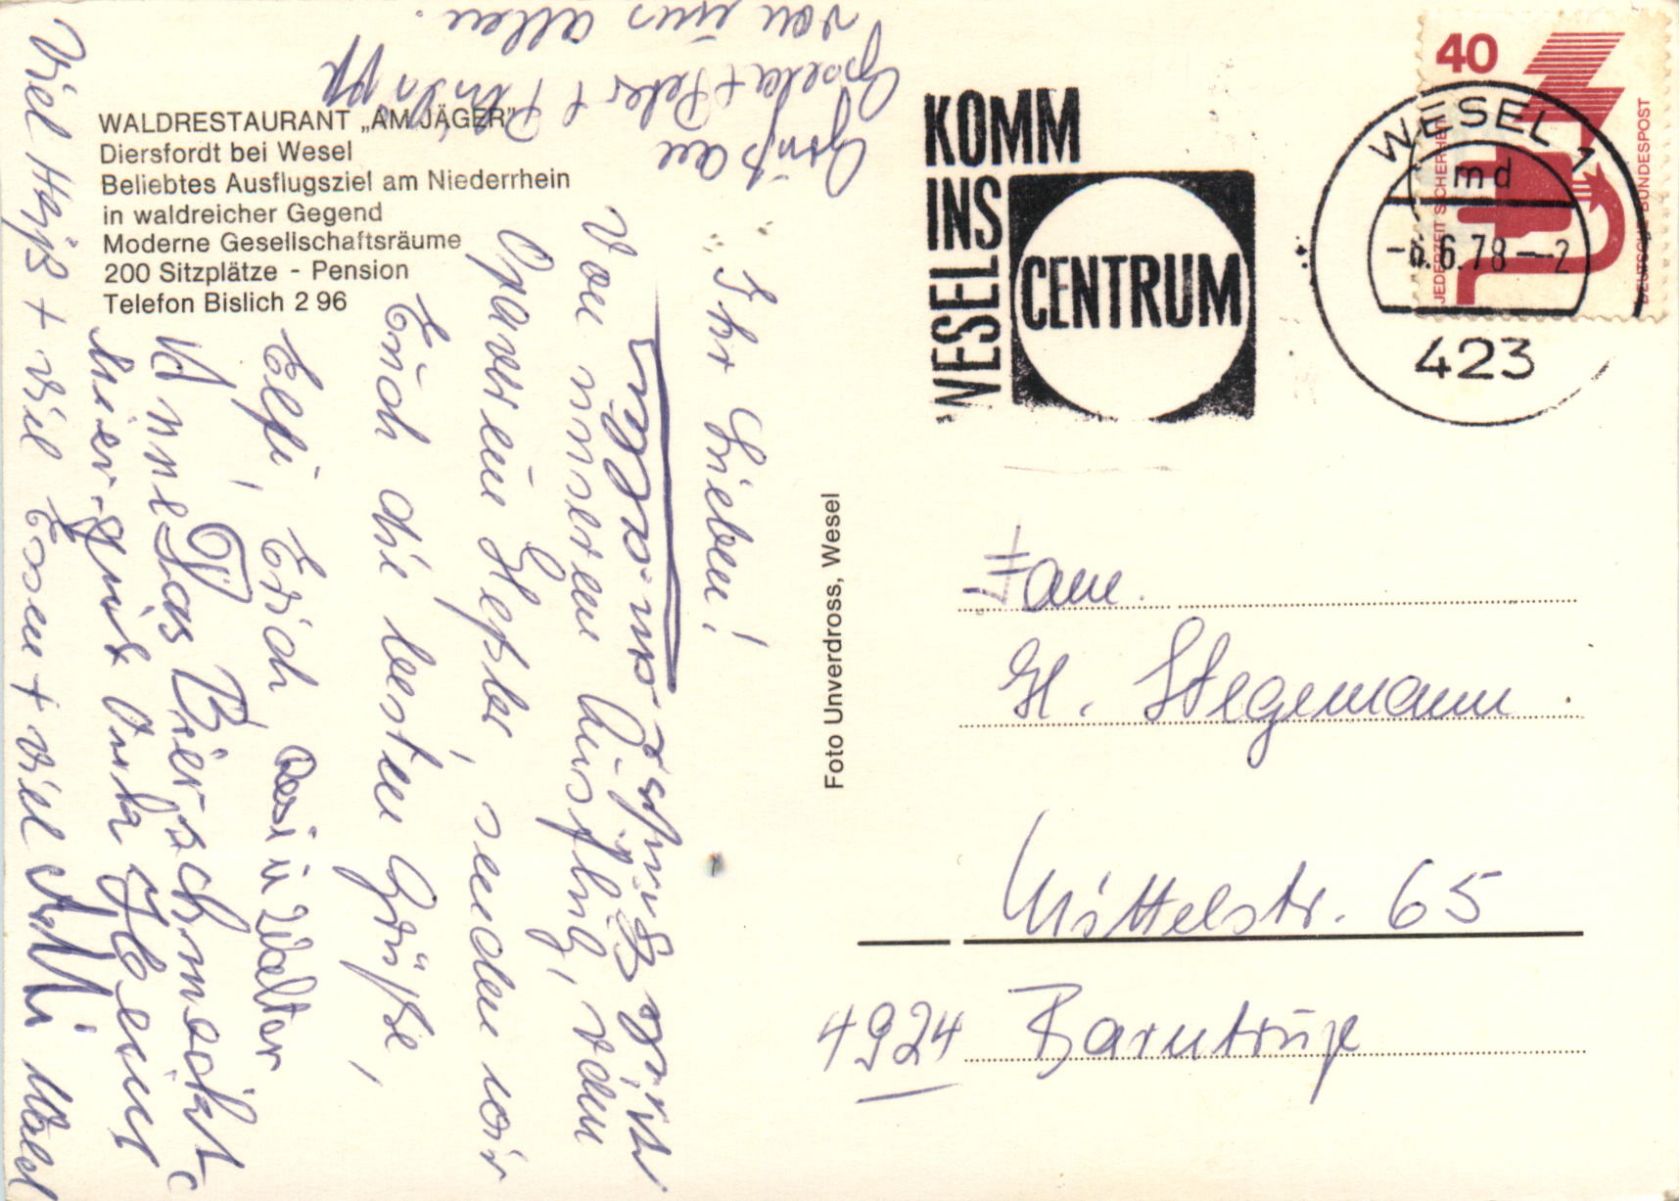 WALDRESTAURANT „AM JÄGER"
Diersfordt bei Wesel
Beliebtes Ausflugsziel am Niederrhein
in waldreicher Gegend
Moderne Gesellschaftsräume
200 Sitzplätze - Pension
Telefon Bislich 2 96
Foto Unverdross, Wesel
KOMM
INS
WESEL
CENTRUM
40
JEDERZEIT SICHERHEIT
DEUTSCHE BUNDESPOST
WESEL 1
md
-6.6.78--2
423
Fam.
H. Stegemann
Mittelstr. 65
4924 Barntrup
Ihr Lieben!
Von unserem Ausflug, vom
Opaverein Hefsler, senden wir
Euch die besten Grüße,
Elfi, Erich, Rosi u Walter
Anne Das Bier schmeckt
hier gut Onkel Heiner
Viel Spaß + viel Essen + viel
von uns allen.
Gisela + Peter +
Gruß an